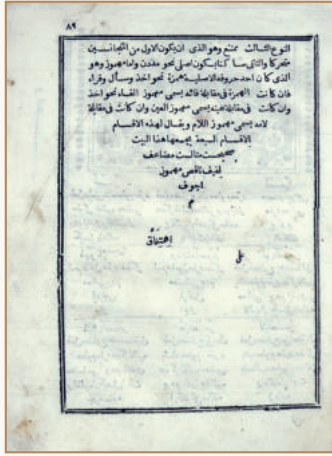 ٨٩
النوع الثالث ممتنع وهو الذى ان يكون الاول من المتجانسين
متحركا والثانى ساكنا بكون اصلى نحو مددن واما مهموز وهو
الذى كان احد حروفه الاصلية همزة نحو اخذ وسأل وقراء
فان كانت الهمزة فى مقابلة فائه يسمى مهموز الفاء نحو اخذ
وان كانت فى مقابلة عينه يسمى مهموز العين وان كانت فى مقابلة
لامه يسمى مهموز اللام ويقال لهذه الاقسام
الاقسام السبعة يجمعها هذا البيت
صحيحست مثالست مضاعف
لفيف ناقص مهموز
اجوف
م